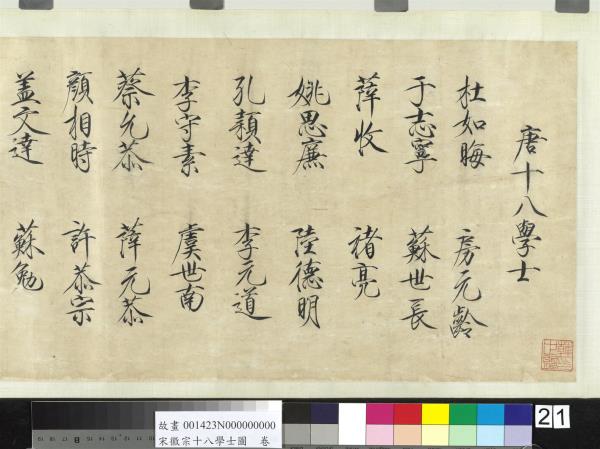 唐十八學士
杜如晦 房元齡
于志寧 蘇世長
薛收 褚亮
姚思廉 陸德明
孔穎達 李元道
李守素 虞世南
蔡允恭 薛元恭
顏相時 許恭宗
盖文達 蘇勉
故畫 001423N000000000
宋徽宗十八學士圖 卷
21